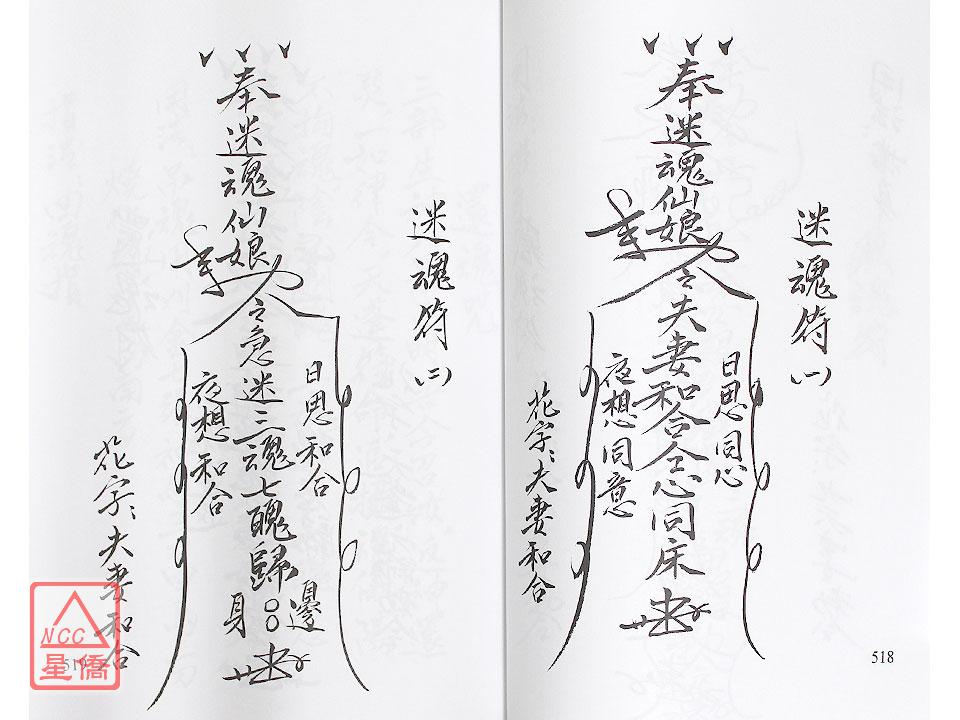 迷魂符(一)
奉迷魂仙娘令夫妻和合仝心同床
日思同心
夜想同意
花字:夫妻和合
518
迷魂符(二)
奉迷魂仙娘令急迷三魂七魄歸
身○○邊
日思和合
夜想和合
花字:夫妻和合
519
NCC
星僑